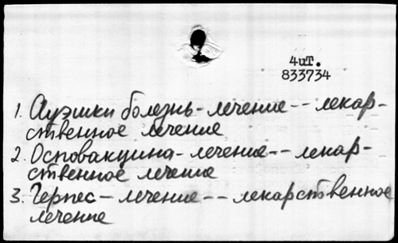 4иТ.
833734
1. Ауэшки болезнь - лечение -- лекар-
ственное лечение
2. Осповакцина - лечение -- лекар-
ственное лечение
3. Герпес - лечение -- лекарственное
лечение